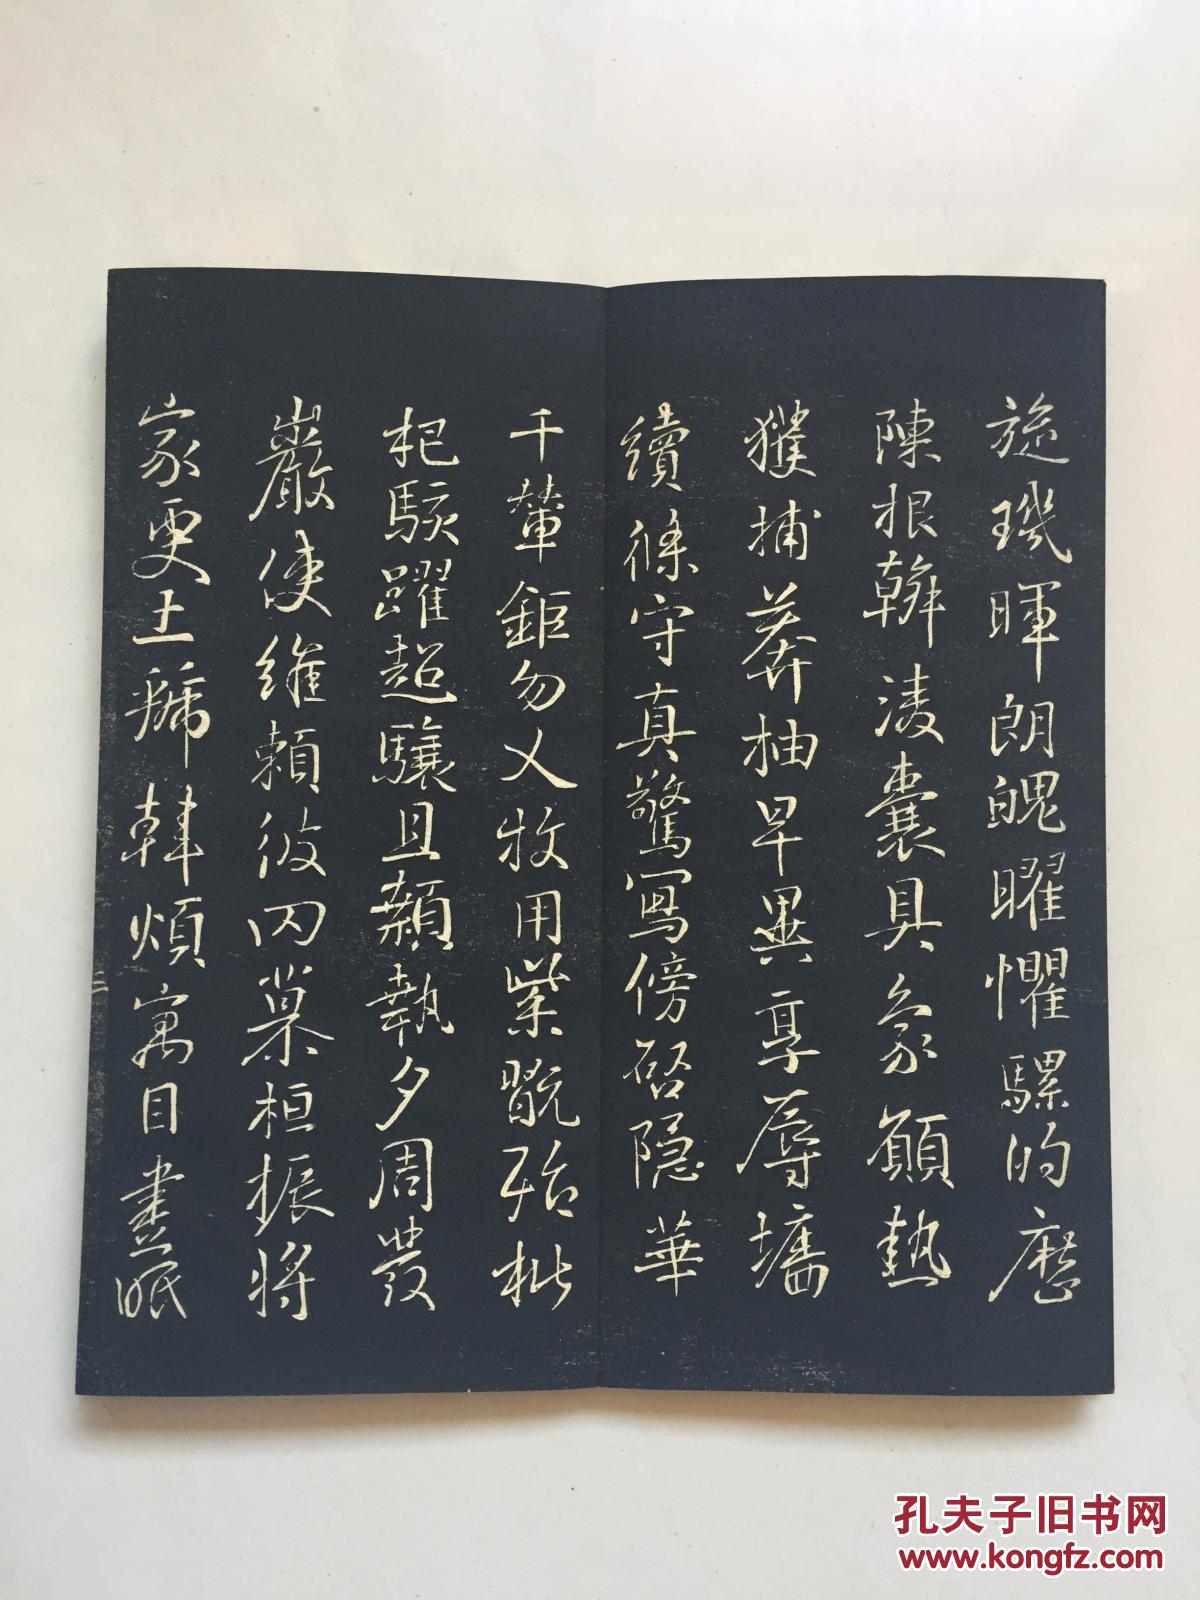 旋璣暉朗魄曜懼騾的歷
陳根幹淩囊具象顧熱
獲捕莽柚早異享辱墻
續條守真驚寫傍啓隱華
千輦鉅勿乂牧用紫翫殆枇
杷駭躍超驤且顙執夕周發
嚴使維賴彼囚慕桓振將
家更土號韓煩寓目晝眠
三
孔夫子旧书网
www.kongfz.com